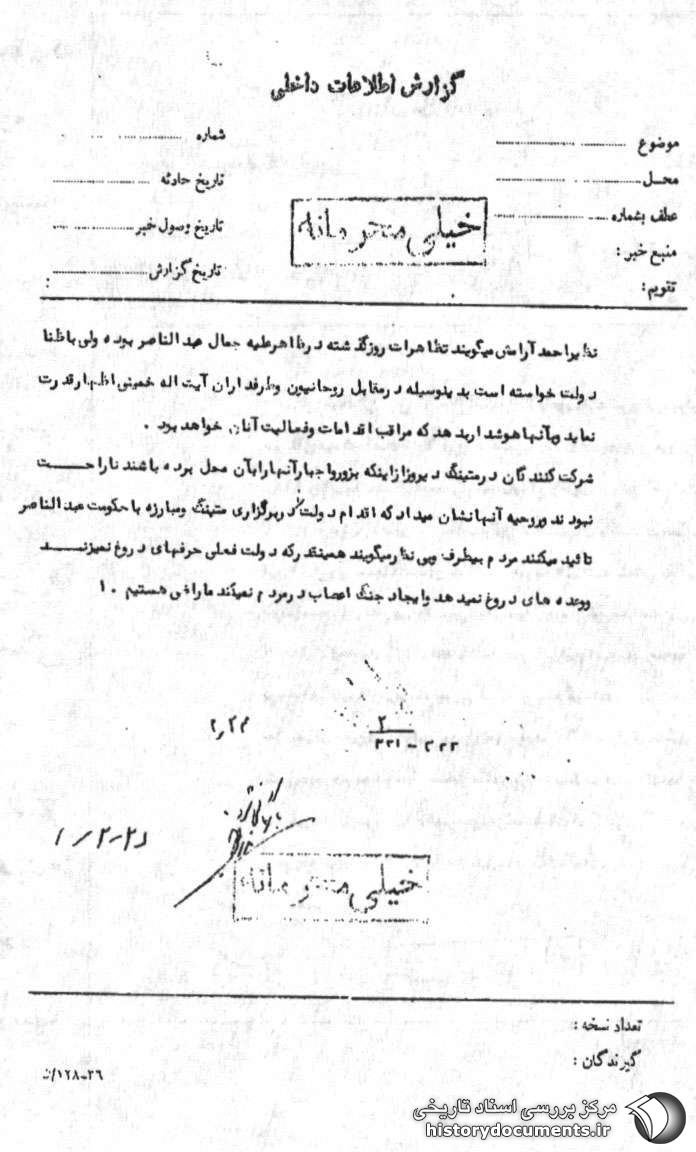 گزارش اطلاعات داخلی
موضوع
شماره
محل
تاریخ حادثه
عطف بشماره
تاریخ وصول خبر
منبع خبر :
تاریخ گزارش
تقویم :
خیلی محرمانه
نظیر احمد آرامش میگویند تظاهرات روزگذشته در ظاهر علیه جمال عبدالناصر بوده ولی باطنا
دولت خواسته است بدینوسیله در مقابل روحانیون وطرفداران آیت اله خمینی اظهار قدرت
نماید وبآنها هوشدار بدهد که مراقب اقدامات وفعالیت آنان خواهد بود .
شرکت کنندگان در متینگ دیروز از اینکه بزور واجبار آنها را بآن محل برده باشند ناراحت
نبودند وروحیه آنها نشان میداد که اقدام دولت در برگزاری متینگ ومبارزه با حکومت عبدالناصر
تائید میکنند مردم بیطرف وبی نظر میگویند همینقدر که دولت فعلی حرفهای دروغ نمیزند
ووعده های دروغ نمیدهد وایجاد جنگ اعصاب در مردم نمیکند ما راضی هستیم . ۱
۲
۳۳۱ - ۳۳۳
خیلی محرمانه
تعداد نسخه :
گیرندگان :
۱۲۸-۳۶/ت
مرکز بررسی اسناد تاریخی
historydocuments.ir